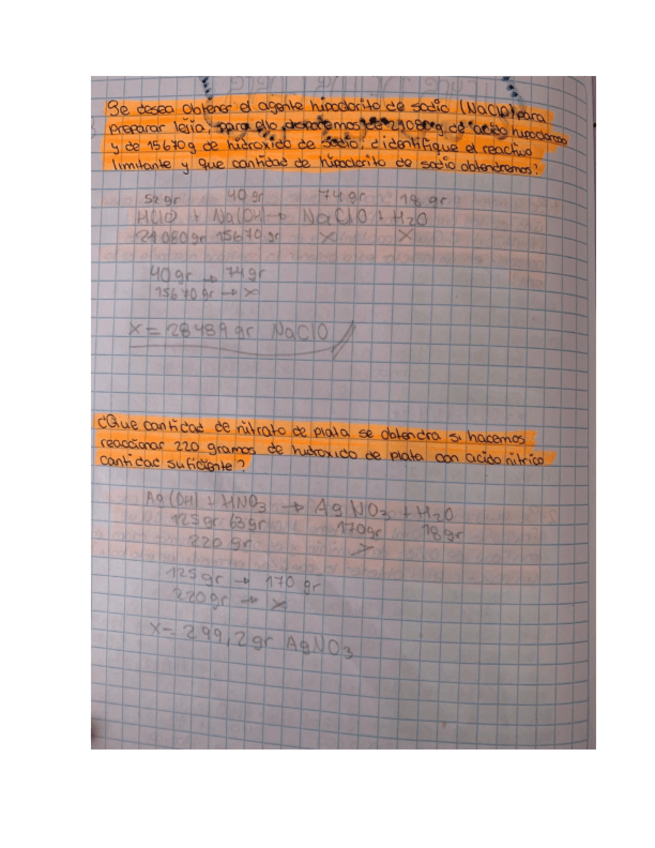 Se desea obtener el agente hipoclorito de sodio (NaClO) para
preparar lejia, para ello de 21080g de acido hipocloroso
y de 15670g de hidroxido de sodio. ¿identifique el reactivo
limitante y que cantidad de hipoclorito de sodio obtendremos?
52gr 40gr 74gr 18gr
HClO + Na(OH) → NaClO + H2O
21080gr 15670gr X X
40gr → 74gr
15670gr → X
X = 28989gr NaClO
¿Que cantidad de nitrato de plata se obtendra si hacemos
reaccionar 220 gramos de hidroxido de plata con acido nitrico
cantidad suficiente?
Ag(OH) + HNO3 → AgNO3 + H2O
125gr 63gr 170gr 18gr
220gr X
125gr → 170gr
220gr → X
X = 299,2gr AgNO3